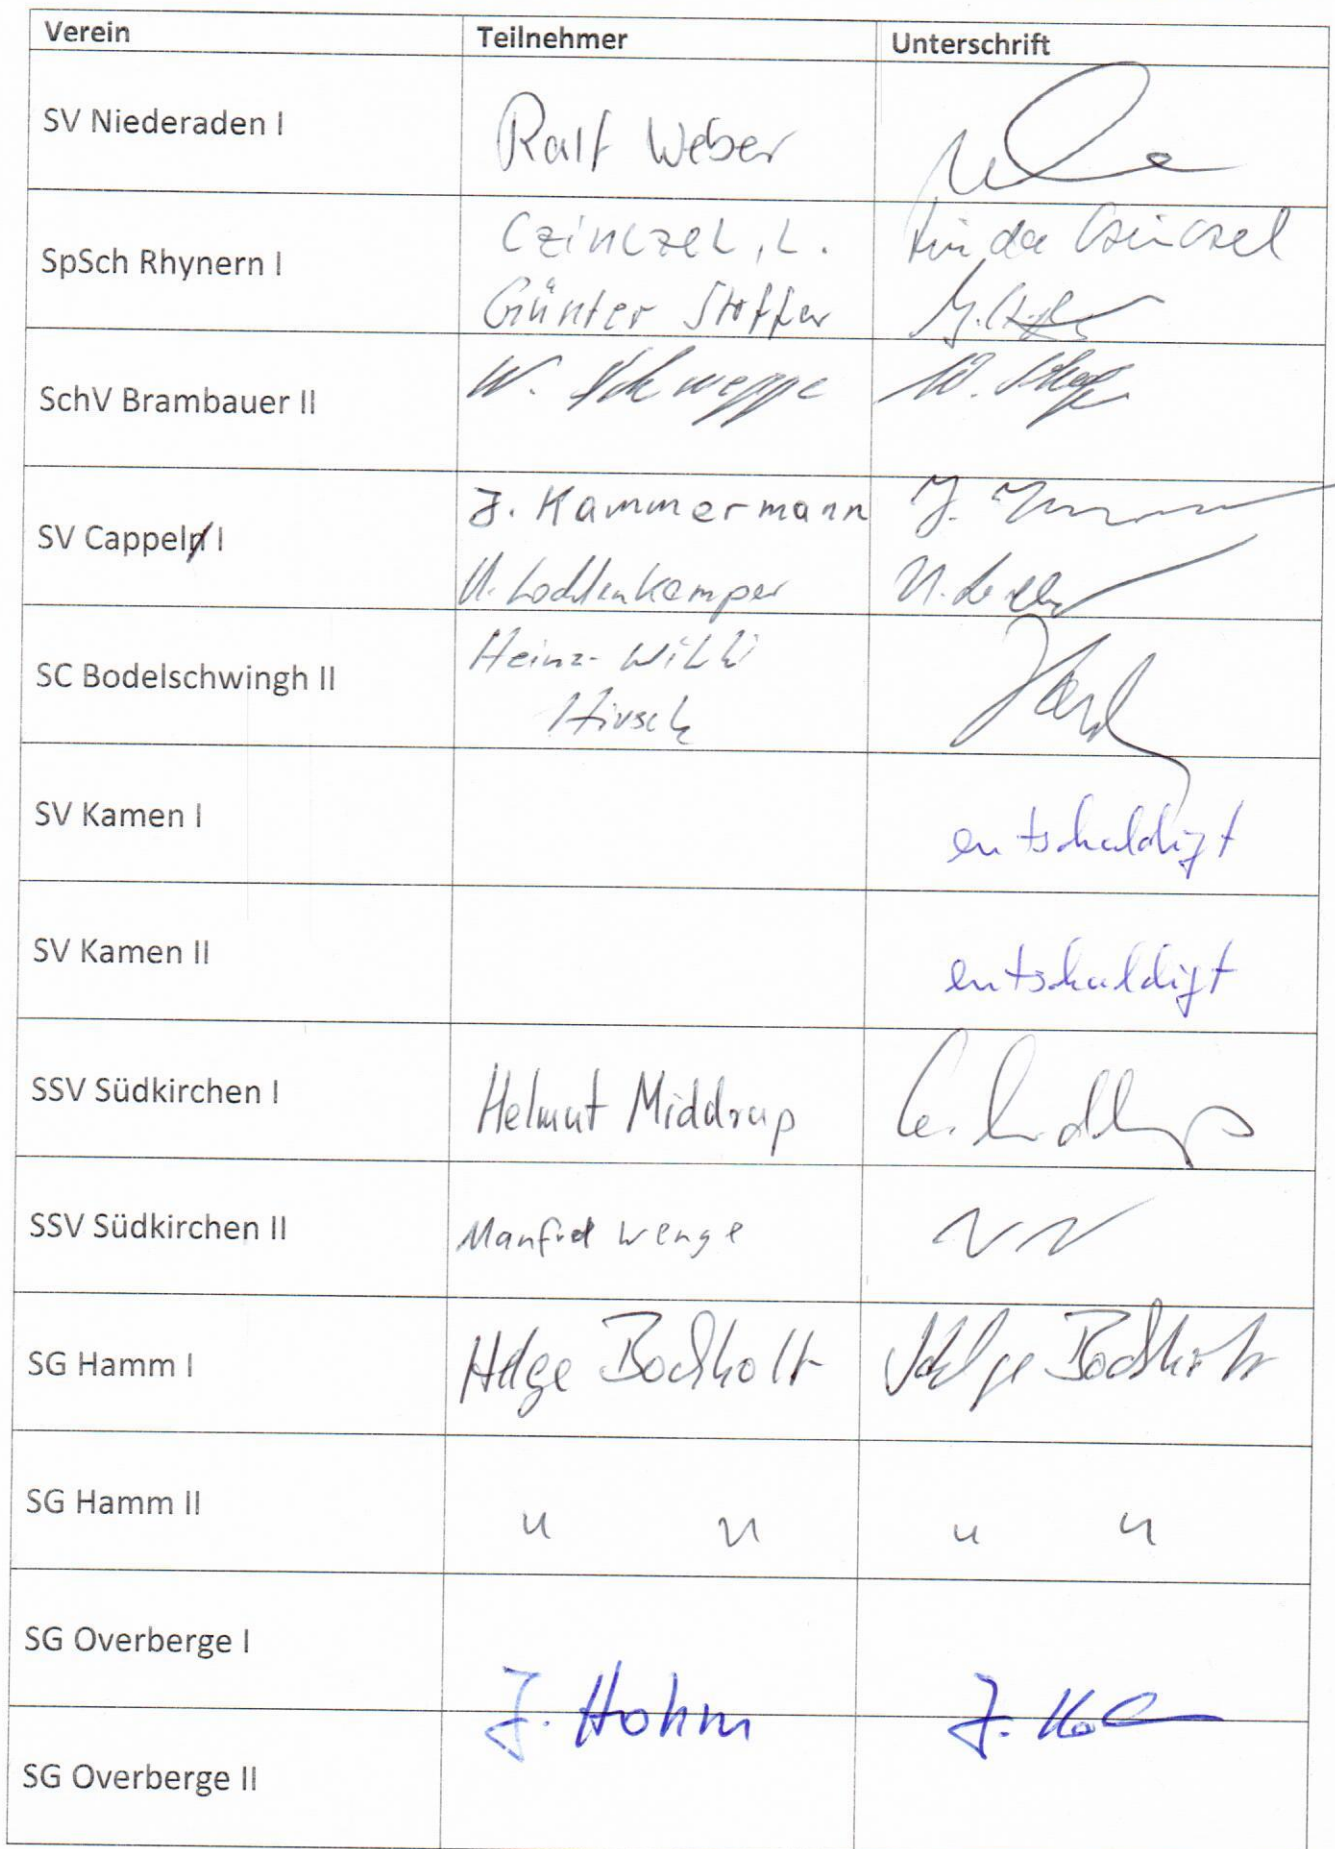 Verein Teilnehmer Unterschrift
SV Niederaden I Ralf Weber
SpSch Rhynern I Czinczel, L. Linda Czinczel
Günter Stoffer
SchV Brambauer II W. Schweppe W.
SV Cappeln I J. Kammermann J.
U. Lochtenkemper U.
SC Bodelschwingh II Heinz-Willi
Hirsch
SV Kamen I entschuldigt
SV Kamen II entschuldigt
SSV Südkirchen I Helmut Middrup
SSV Südkirchen II Manfred Wenge
SG Hamm I Helge Bockholt Helge Bockholt
SG Hamm II " " " "
SG Overberge I
J. Hohm J.
SG Overberge II